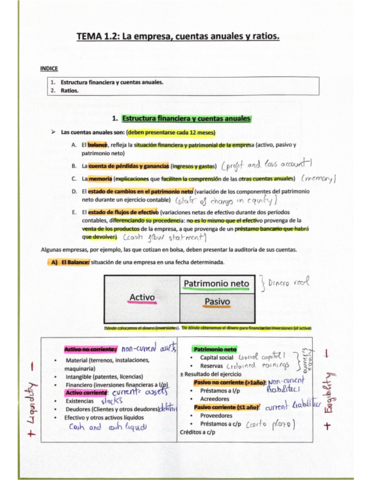 TEMA 1.2: La empresa, cuentas anuales y ratios.
INDICE
1. Estructura financiera y cuentas anuales.
2. Ratios.
1. Estructura financiera y cuentas anuales
➢ Las cuentas anuales son: (deben presentarse cada 12 meses)
A. El balance, refleja la situación financiera y patrimonial de la empresa (activo, pasivo y
patrimonio neto)
B. La cuenta de pérdidas y ganancias (ingresos y gastos) (profit and loss account)
C. La memoria (explicaciones que faciliten la comprensión de las otras cuentas anuales) (memory)
D. El estado de cambios en el patrimonio neto (variación de los componentes del patrimonio
neto durante un ejercicio contable) (state of change in equity)
E. El estado de flujos de efectivo (variaciones netas de efectivo durante dos períodos
contables, diferenciando su procedencia: no es lo mismo que el efectivo provenga de la
venta de los productos de la empresa, a que provenga de un préstamo bancario que habrá
que devolver) (cash flow statment)
Algunas empresas, por ejemplo, las que cotizan en bolsa, deben presentar la auditoría de sus cuentas.
A) El Balance: situación de una empresa en una fecha determinada.
Activo
Patrimonio neto
Pasivo
} Dinero real
Activo no corriente: non-current assets
• Material (terrenos, instalaciones,
maquinaria)
• Intangible (patentes, licencias)
• Financiero (inversiones financieras a l/p)
Activo corriente: current assets
• Existencias stocks
• Deudores (Clientes y otros deudores)
• Efectivo y otros activos líquidos
Cash and cash liquids
Patrimonio neto
• Capital social (social capital)
• Reservas (retained earnings)
± Resultado del ejercicio
Pasivo no corriente (>1año): Non-current
liabilities
• Préstamos a l/p
• Acreedores
Pasivo corriente (≤1 año) current liabilities
• Proveedores
• Préstamos a c/p (corto plazo)
Créditos a c/p
+ Liquidity -